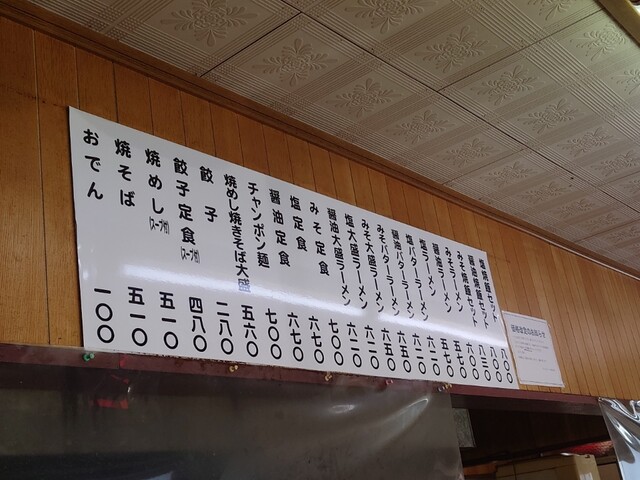 塩焼飯セット 八〇〇
醤油焼飯セット 八〇〇
みそ焼飯セット 八三〇
みそラーメン 六〇〇
醤油ラーメン 五七〇
塩ラーメン 五七〇
塩バターラーメン 六二〇
醤油バターラーメン 六二〇
みそバターラーメン 六五〇
みそ大盛ラーメン 六五〇
塩大盛ラーメン 六二〇
醤油大盛ラーメン 六二〇
みそ定食 七〇〇
塩定食 六七〇
醤油定食 六七〇
チャンポン麺 七〇〇
焼めし焼きそば大盛 五六〇
餃子 二八〇
餃子定食(スープ付) 四八〇
焼めし(スープ付) 五一〇
焼そば 五一〇
おでん 一〇〇